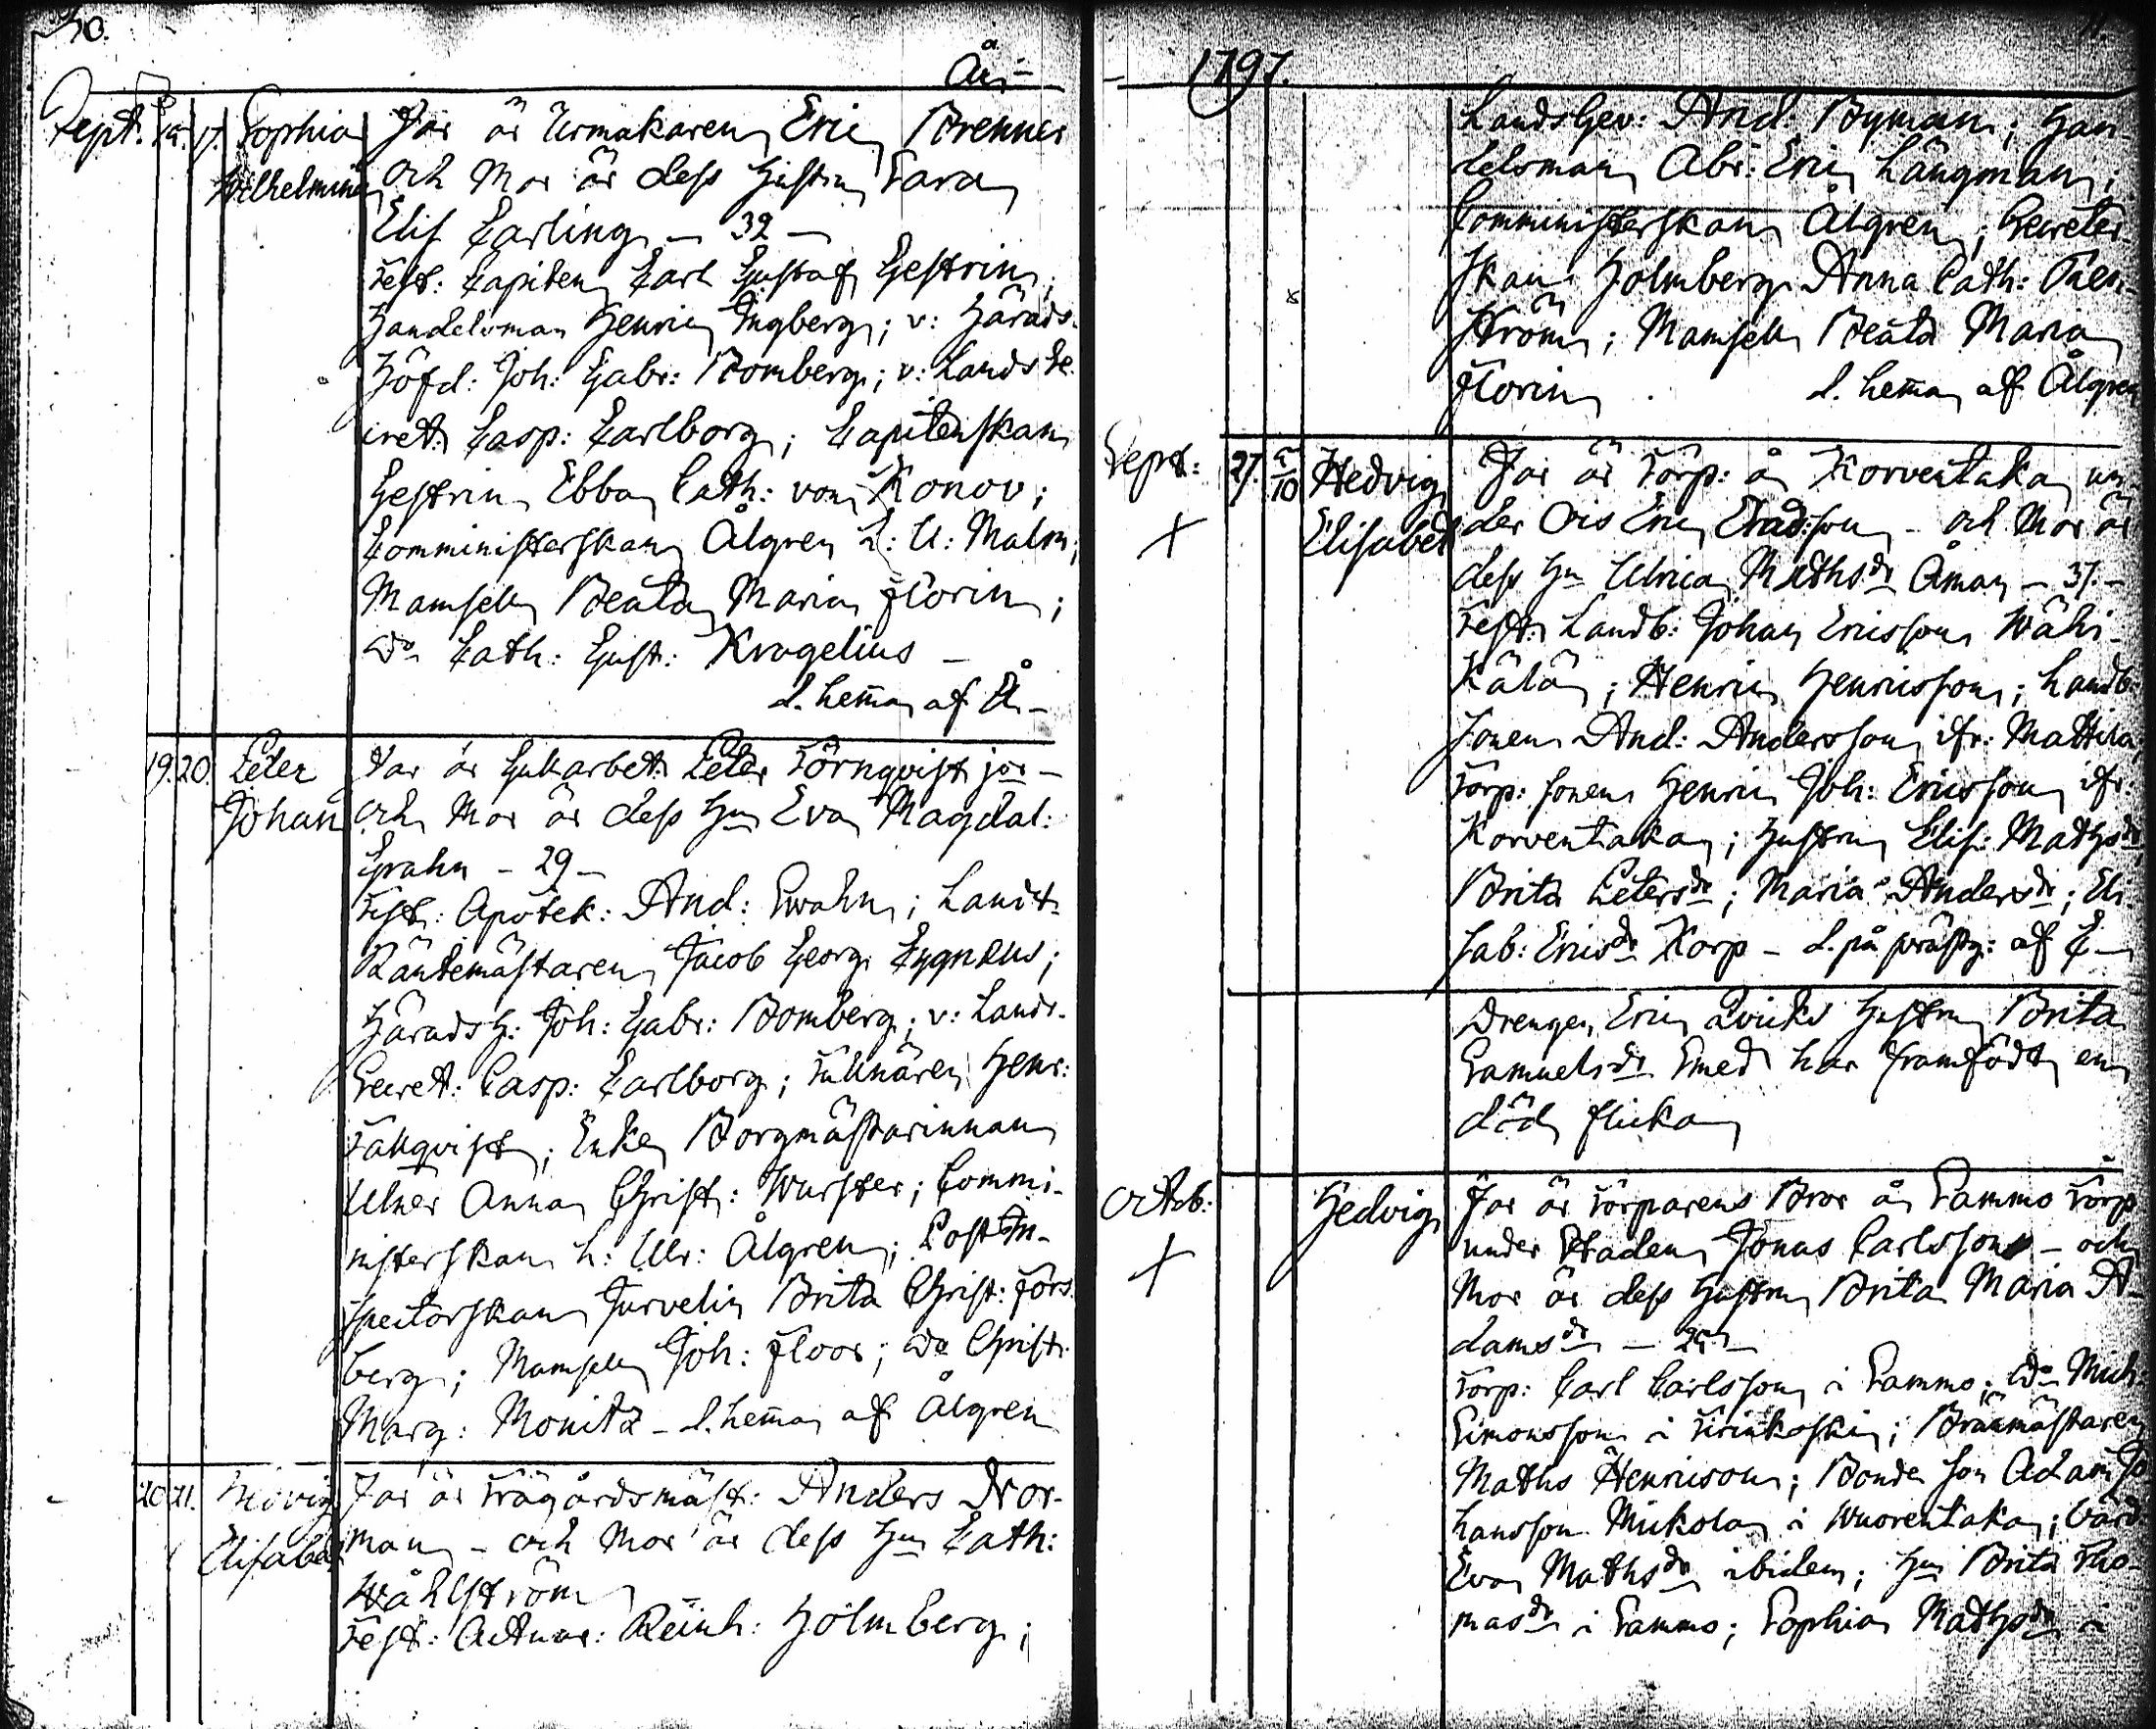 30.
År
Sept. 15. 17. Sophia Far är Urmakaren Eric Brenner
Wilhelmina och Mor är dess Hustru Sara
Elis Carling – 32 –
Test: Capiten Carl Gustaf Gestrin;
Handelsman Henric Ingberg; v: Härads-
Höfd: Joh: Gabr: Bomberg; v: Lands Se-
cret: Casp: Carlborg; Capitenskan
Gestrin Ebba Cath: von Konov;
Comministerskan Ålgren L: U: Malm;
Mamsell Beata Maria Florin;
Do Cath: Gust: Krogelius –
d. hemma af Å –
19. 20. Peter Far är Gullarbet: Peter Törnqvist jor –
Johan och Mor är dess Hu Eva Magdal:
Grahn – 29 –
Test: Apotek: And: Grahn; Landt-
Räntemästaren Jacob Georg Cygnæus;
Häradsh: Joh: Gabr: Bomberg; v: Lands-
Secret: Casp: Carlborg; Tullnären Henr:
Tallqvist; Enke Borgmästarinnan
Ulner Anna Christ: Wurster; Commi-
nisterskan L: Ulr: Ålgren; Post In-
spectorskan Jurvelin Brita Christ: Fors-
berg; Mamsell Joh: Floor; Do Christ:
Marg: Monitz – d. hemma af Ålgren
20. 21. Hedvig Far är Trägårdsmäst: Anders Nor-
Elisabet man – och Mor är dess Hu Cath:
Wåhlström
Test: Actuar: Reinh: Holmberg;
1797.
11.
Landsgev: And: Byman; Han-
delsman Abr: Eric Långman;
Comministerskan Ålgren; Secreter-
skan Holmberg Anna Cath:
ström; Mamsell Beata Maria
Florin . d. hemma af Ålgren
Sept: 27. 10 Hedvig Far är Torp: å Korventaka un-
Elisabet der Ois Eric – och Mor är
dess Hu Ulrica Mathsdr Åman – 37. –
Test: Landb: Johan Ericsson Wähi-
Kälä; Henric Henricsson; Landb:
sonen And: Andersson ifr: Mattila
Torp: sonen Henric Joh: Ericsson ifr:
Korventaka; Hustru Elis: Mathsdr
Brita Petersdr; Maria Andersdr; Eli-
sab: Ericsdr Korp – d. på prästg: af C –
Drengen Eric Qvicks Hustru Brita
Samuelsdr Smed har framfödt en
död flicka
Octob: Hedvig Far är Torparens Bror å Sammo Torp
under Staden Jonas Carlsson – och
Mor är dess Hustru Brita Maria A-
damsdr – 25 –
Torp: Carl Carlsson i Sammo; Do Mich:
Simonsson i Kirinkoski; Bränmästaren
Maths Henricson; Bonde son Adam Jo-
hansson Mickola i Wuorentaka; Värd:
Eva Mathsdr ibidem; Hu Brita Tho-
masdr i Sammo; Sophia Mathsdr i